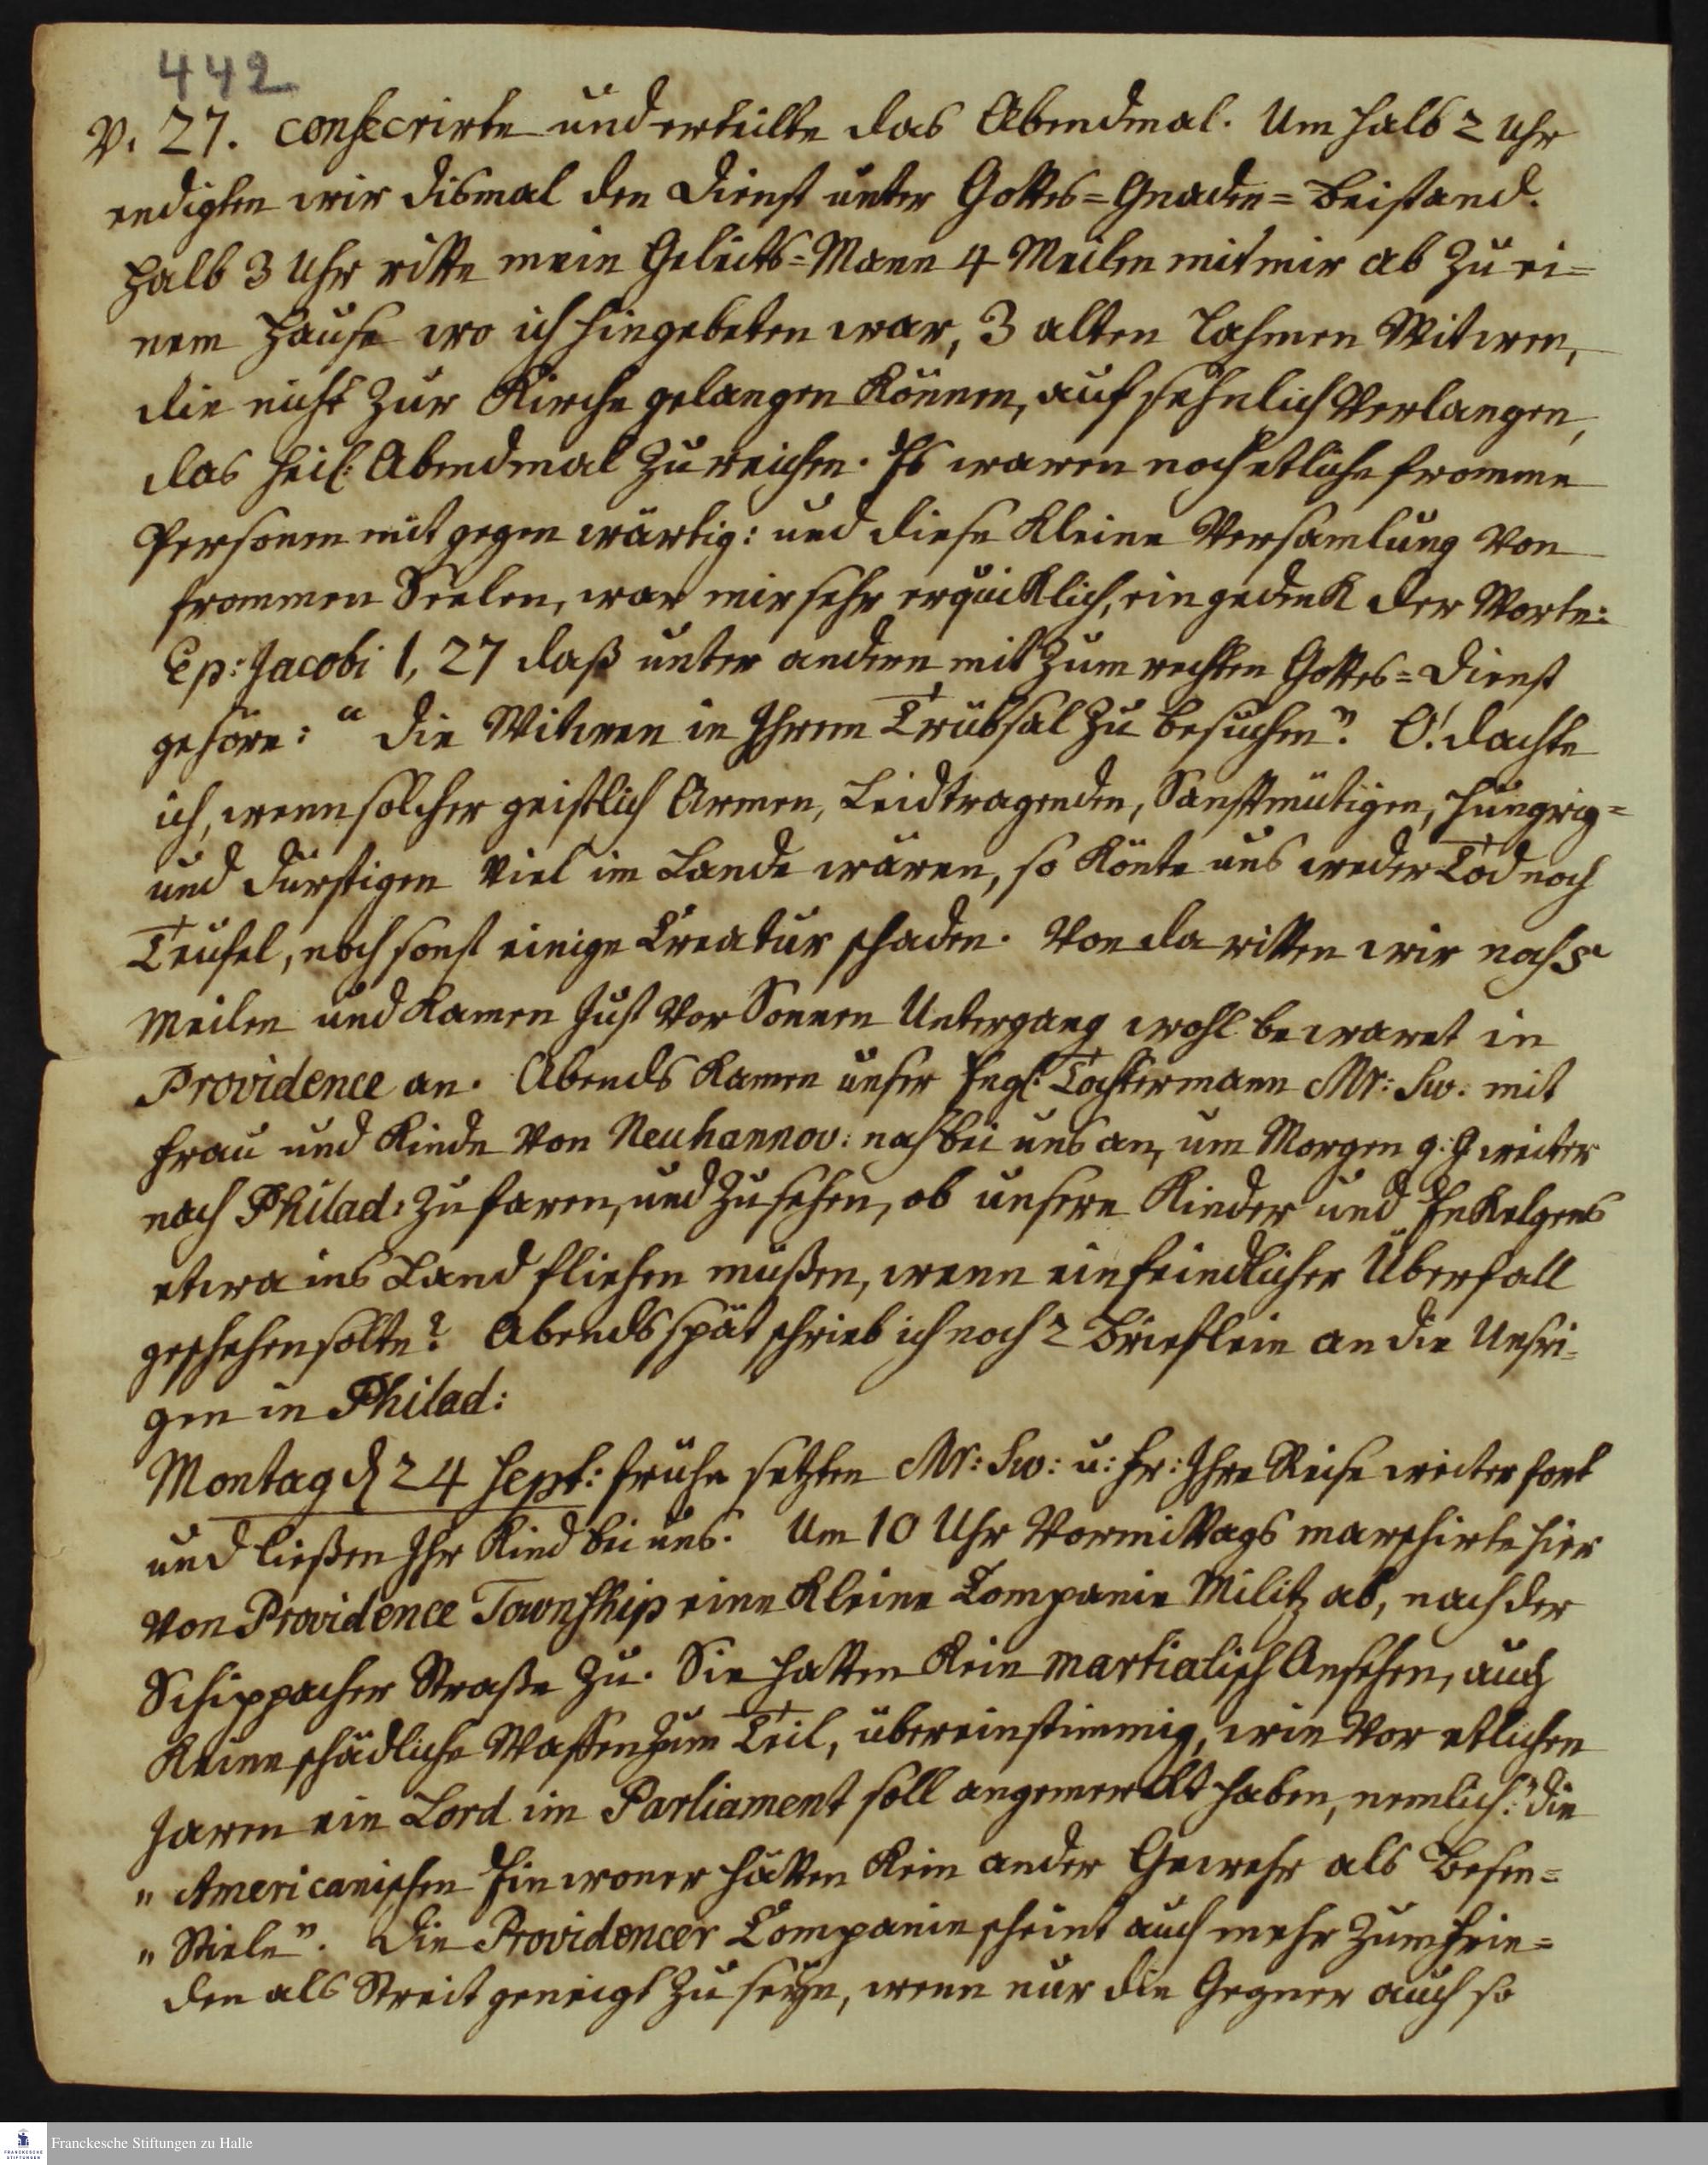 442
V. 27. consecrirte und erteilte das Abendmal. Um halb 2 Uhr
endigten wir dismal den Dienst unter Gottes=Gnaden=Beistand.
Halb 3 Uhr ritte mein Geleits=Mann 4 Meilen mit mir ab zu ei=
nem Hause wo ich hingebeten war, 3 alten lahmen Witwen,
die nicht zur Kirche gelangen können, auf sehnlich Verlangen,
das heil: Abendmal zu reichen. Es waren noch etliche fromme
Personen mit gegenwärtig: und diese kleine Versamlung von
frommen Seelen, war mir sehr erquicklich, eingedenk der Worte:
Ep: Jacobi 1, 27 daß unter andern mit zum rechten Gottes=Dienst
gehöre: "die Witwen in Ihrem Trübsal zu besuchen". O! dachte
ich, wenn solcher geistlich Armen, Leidtragenden, Sanftmütigen, Hungrig=
und Durstigen viel im Lande wären, so könte uns weder Tod noch
Teufel, noch sonst einige Creatur schaden. Von da ritten wir noch 5
Meilen und kamen just vor Sonnen Untergang wohl bewaret in
Providence an. Abends kamen unser Engl: Tochtermann Mr: Sw: mit
Frau und Kinde von Neuhannov: nach bei uns an, um Morgen g: G weiter
nach Philad: zu faren, und zu sehen, ob unsere Kinder und Enkelgens
etwa ins Land fliehen müßen, wenn ein feindlicher Überfall
geschehen solte? Abends spät schrieb ich noch 2 Brieflein an die Unsri=
gen in Philad:
Montag d 24 Sept: frühe setzten Mr: Sw: u: Fr: Ihre Reise weiter fort
und ließen Ihr Kind bei uns. Um 10 Uhr Vormittags marschirte hier
von Providence Township eine kleine Companie Militz ab, nach der
Schippacher Straße zu. Sie hatten kein martialisch Ansehen, auch
keine schädliche Waffen zum Teil, übereinstimmig, wie vor etlichen
Jaren ein Lord im Parliament soll angemerckt haben, nemlich: "die
" Americanischen Einwoner hätten kein ander Gewehr als Besen=
" Stiele". Die Providencer Companie scheint auch mehr zum Frie=
den als Streit geneigt zu seyn, wenn nur die Gegner auch so
Franckesche Stiftungen zu Halle